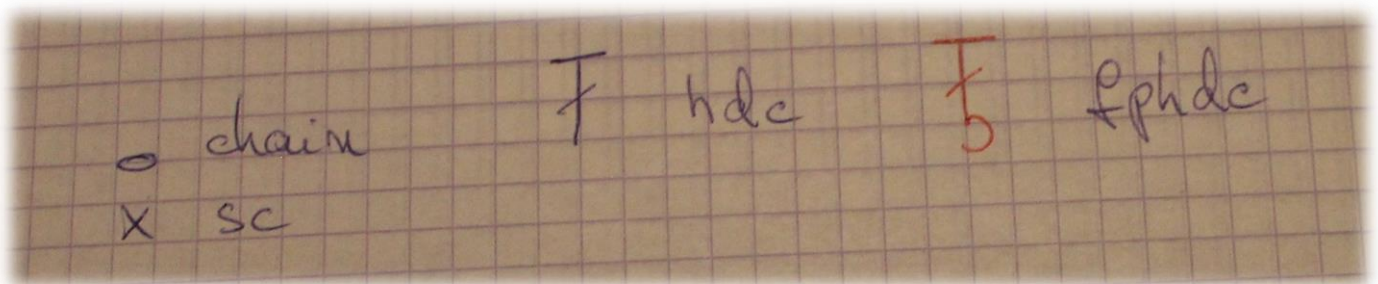 o chain
x sc
hdc
fphdc